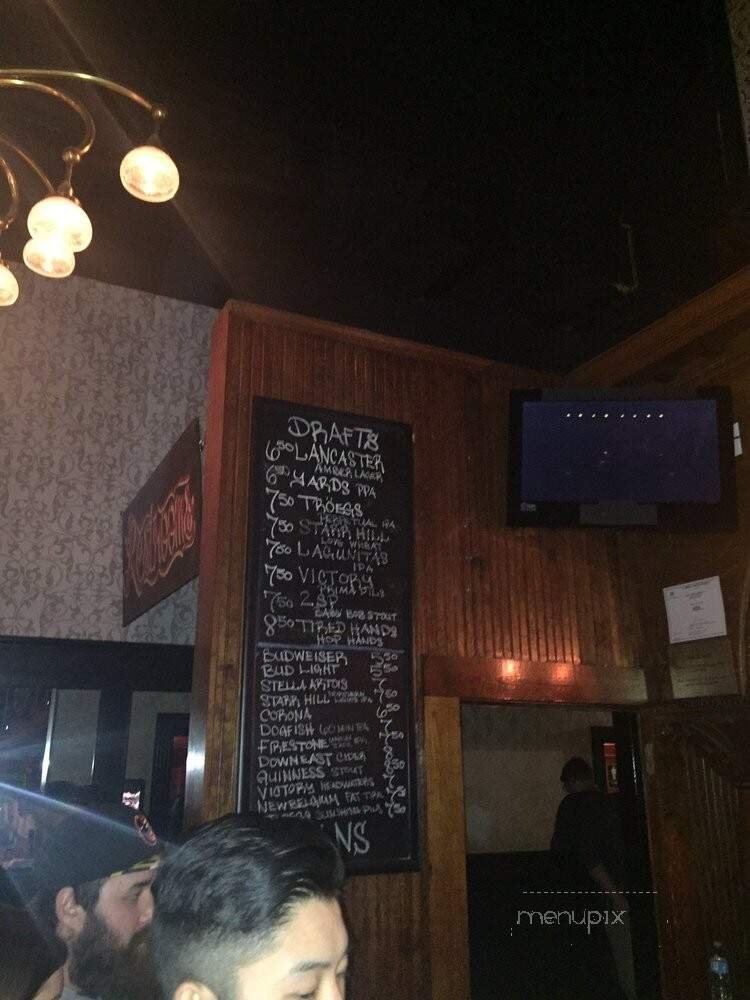 DRAFTS
6 50 LANCASTER
AMBER LAGER
6 50 YARDS PPA
7 50 TRÖEGS
PERPETUAL IPA
7 50 STARR HILL
LOVE WHEAT
7 50 LAGUNITAS
IPA
7 50 VICTORY
PRIMA PILS
7 50 2SP
BABY BOB STOUT
8 50 TIRED HANDS
HOP HANDS
BUDWEISER 5 50
BUD LIGHT 5 50
STELLA ARTOIS 7
STARR HILL NORTHERN LIGHTS IPA 7 50
CORONA 6
DOGFISH 60 MIN IPA 7 50
FIRESTONE
DOWNEAST CIDER
GUINNESS STOUT
VICTORY HEADWATERS
NEW BELGIUM FAT TIRE
SUNSHINE PILS 7 50
menupix